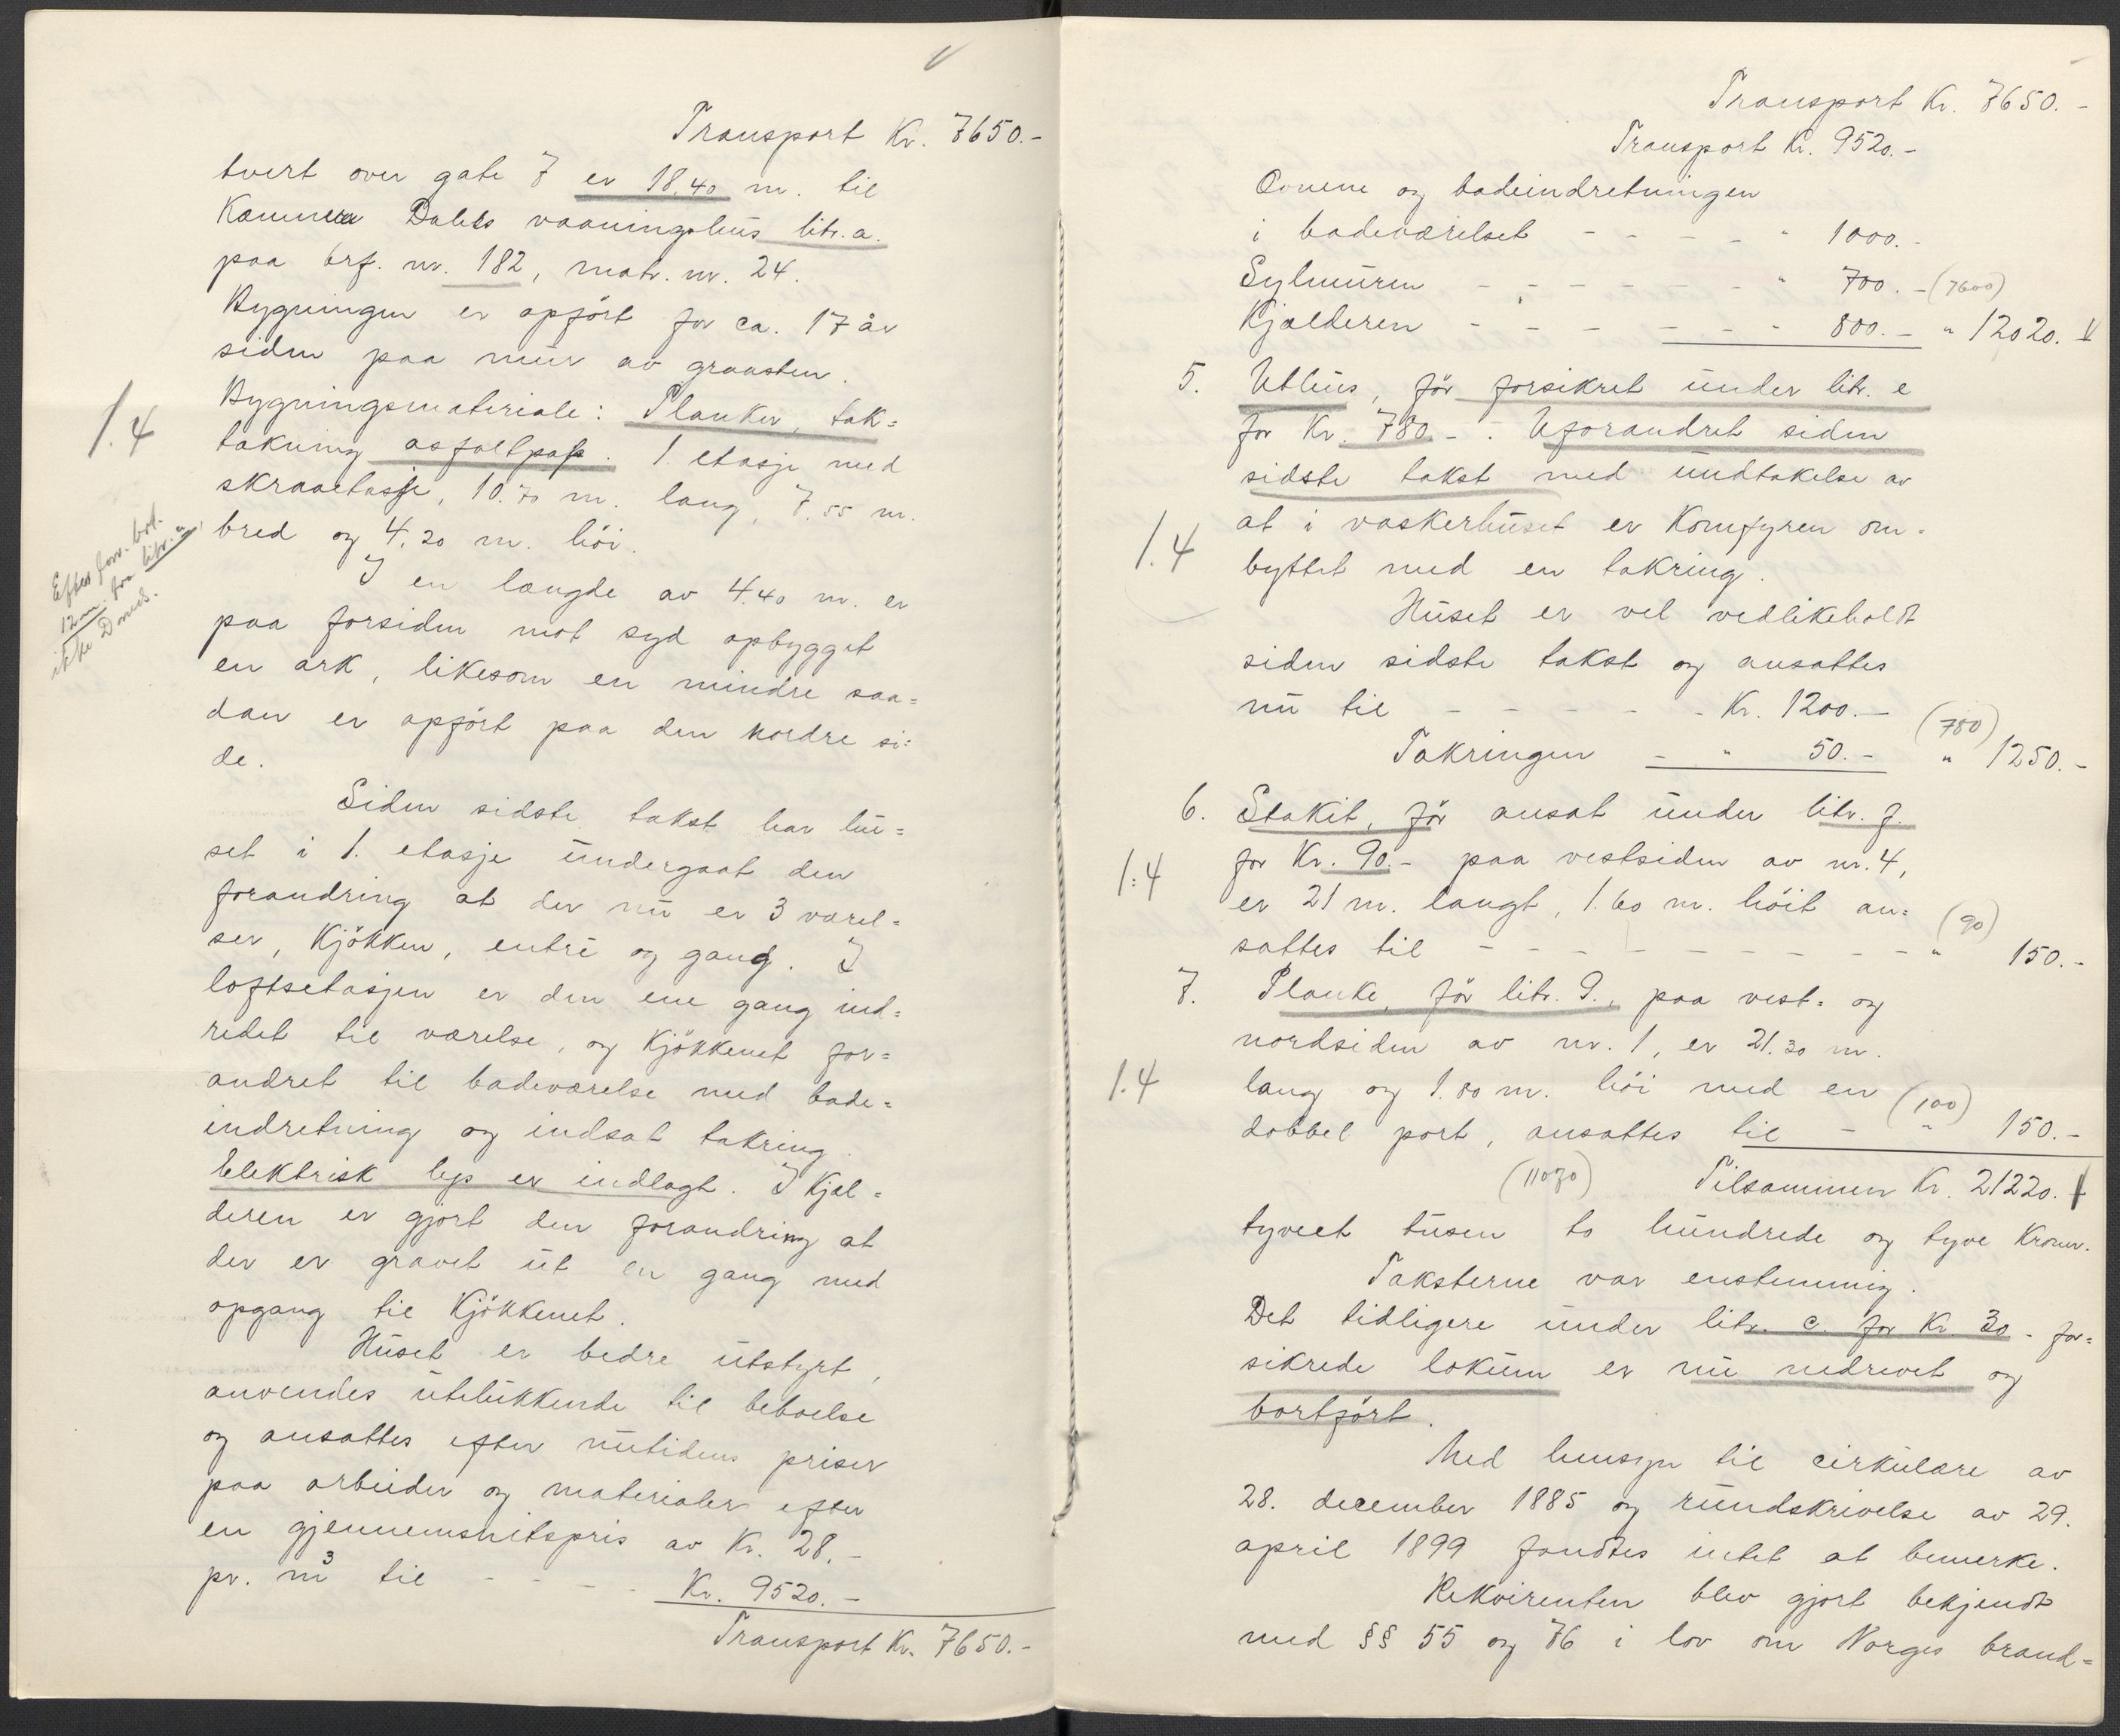 Transport Kr. 7650.-
tvert over gate 7 er 18.40 m. til
Dahls vaaningshus litr. a.
paa brf. nr. 182, matr. nr. 24.
Bygningen er opført for ca. 17 år
siden paa mur av graasten.
1.4
Bygningsmateriale: Planker, tak=
tækning asfaltpap. 1 etasje med
skraaetasje, 10.70 m. lang, 7.55 m.
bred og 4.20 m. høi.
Efter forr. brt.
12 m fra litr. a,
ikke Dmds.
I en længde av 4.40 m. er
paa forsiden mot syd opbygget
en ark, likesom en mindre saa=
dan er opført paa den nordre si=
de.
Siden sidste takst har hu=
set i 1. etasje undergaat den
forandring at der nu er 3 værel=
ser, Kjøkken, entré og gang. I
loftsetasjen er den ene gang ind=
redet til værelse, og Kjøkkenet for=
andret til badeværelse med bade=
indretning og indsat takring.
Elektrisk lys er indlagt. I Kjæl=
deren er gjort den forandring at
der er gravet ut en gang med
opgang til Kjøkkenet.
Huset er bedre utstyrt,
anvendes utelukkende til beboelse
og ansættes efter nutidens priser
paa arbeider og materialer efter
en gjennemsnitspris av Kr. 28.-
pr. m³ til - - - - Kr. 9520.-
Transport Kr. 7650.-
Transport Kr. 7650.-
Transport Kr. 9520.-
Ovnene og badeindretningen
i badeværelset - - - - " 1000.-
Sylmuren - - - - - - " 700.- (7600)
Kjælderen - - - - - - " 800.- " 12020.-
5. Uthus, før forsikret under litr. e
for Kr. 780.-. Uforandret siden
sidste takst med undtakelse av
1.4
at i vaskerhuset er Komfyren om-
byttet med en takring.
Huset er vel vedlikeholdt
siden sidste takst og ansættes
nu til - - - - - Kr. 1200.-
(780)
Takringen - " 50.- " 1250.-
6. Stakit, før ansat under litr. f.
1:4
for Kr. 90.- paa vestsiden av nr. 4,
er 21 m. langt, 1.60 m. høit an= (90)
sættes til - - - - - - - - - " 150.-
7. Planke, før litr. g., paa vest= og
nordsiden av nr. 1, er 21.30 m.
1.4
lang og 1.80 m. høi med en (100)
dobbel port, ansættes til - " 150.-
(11070) Tilsammen Kr. 21220.-
tyveet tusen to hundrede og tyve Kroner.
Taksterne var enstemmig.
Det tidligere under litr. c. for Kr. 30 - for=
sikrede lokum er nu nedrevet og
bortført.
Med hensyn til cirkulære av
28. december 1885 og rundskrivelse av 29.
april 1899 fandtes intet at bemerke.
Rekvirenten blev gjort bekjendt
med §§ 55 og 76 i lov om Norges brand=